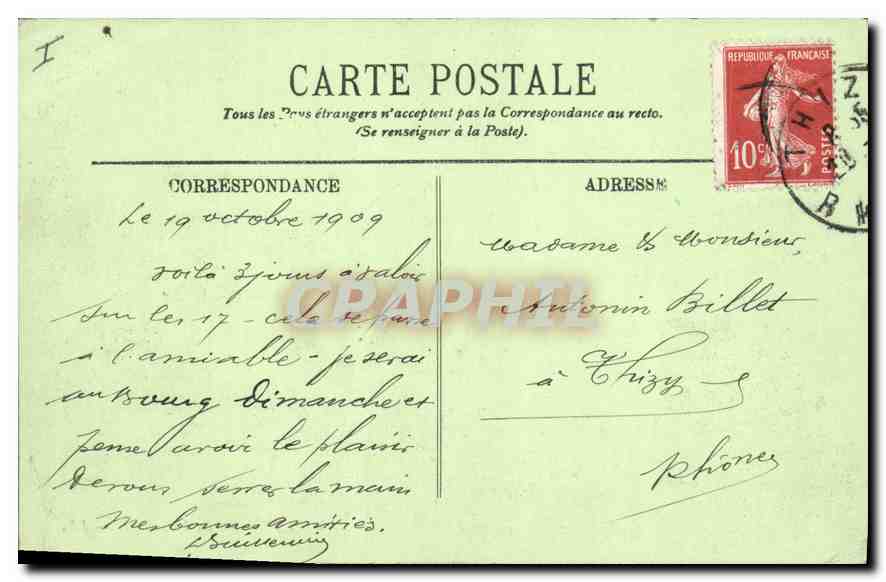 I
CARTE POSTALE
Tous les Pays étrangers n'acceptent pas la Correspondance au recto.
(Se renseigner à la Poste).
REPUBLIQUE FRANÇAISE
10c
POSTES
THIZY
CORRESPONDANCE
ADRESSE
Le 19 octobre 1909
voilà 3 jours à valoir
sur les 17 - cela se passe
à l'amiable - je serai
au Bourg Dimanche et
pense avoir le plaisir
de vous serrer la main
mes bonnes amitiés.
Madame & Monsieur,
Antonin Billet
à Thizy
Rhône
CPAPHIL